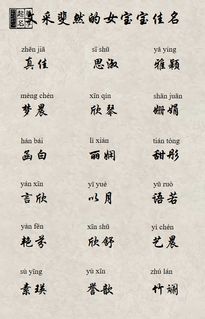 起名
文采斐然的女宝宝佳名
zhēn jiā sī shū yǎ yǐng
真佳 思淑 雅颖
mèng chén xīn qín shān juān
梦晨 欣琴 姗娟
hán bái lì xián tián tóng
函白 丽娴 甜彤
yán xīn yǐ yuè yǔ ruò
言欣 以月 语若
yàn fēn xīn shū yì chén
艳芬 欣舒 艺晨
sù yīng yù xīn zhú lán
素瑛 誉歆 竹斓